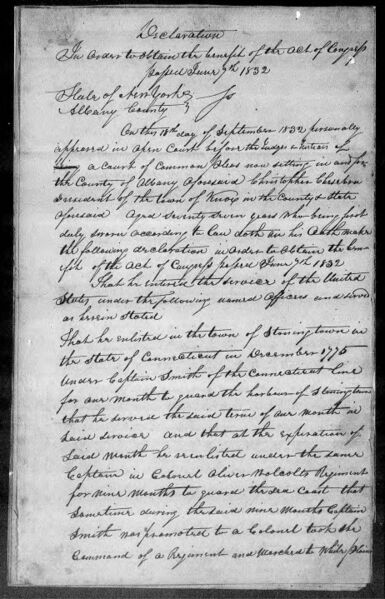 Declaration
In order to obtain the benefit of the act of Congress
passed June 7th 1832
State of New York
Albany County } Ss
On this 18th day of September 1832 personally
appeared in open Court before the Judges & Justices of
a Court of Common Pleas now sitting in and for
the County of Albany aforesaid Christopher
resident of the town of Knox in the County & State
aforesaid Aged Seventy Seven years who being first
duly sworn according to law doth on his Oath make
the following declaration in order to obtain the ben-
efit of the act of Congress passed June 7th 1832
That he entered the service of the United
States under the following named officers and served
as herein stated
That he enlisted in the town of Stonington in
the State of Connecticut in December 1775
under Captain Smith of the Connecticut line
for one Month to guard the harbour of Stonington
that he served the said term of one Month in
said service and that at the expiration of
said Month he reenlisted under the same
Captain in Colonel Oliver Wolcotts Regiment
for nine Months to guard the Sea Coast that
sometime during the said nine Months Captain
Smith was promoted to a Colonel took the
Command of a Regiment and Marched to White plains